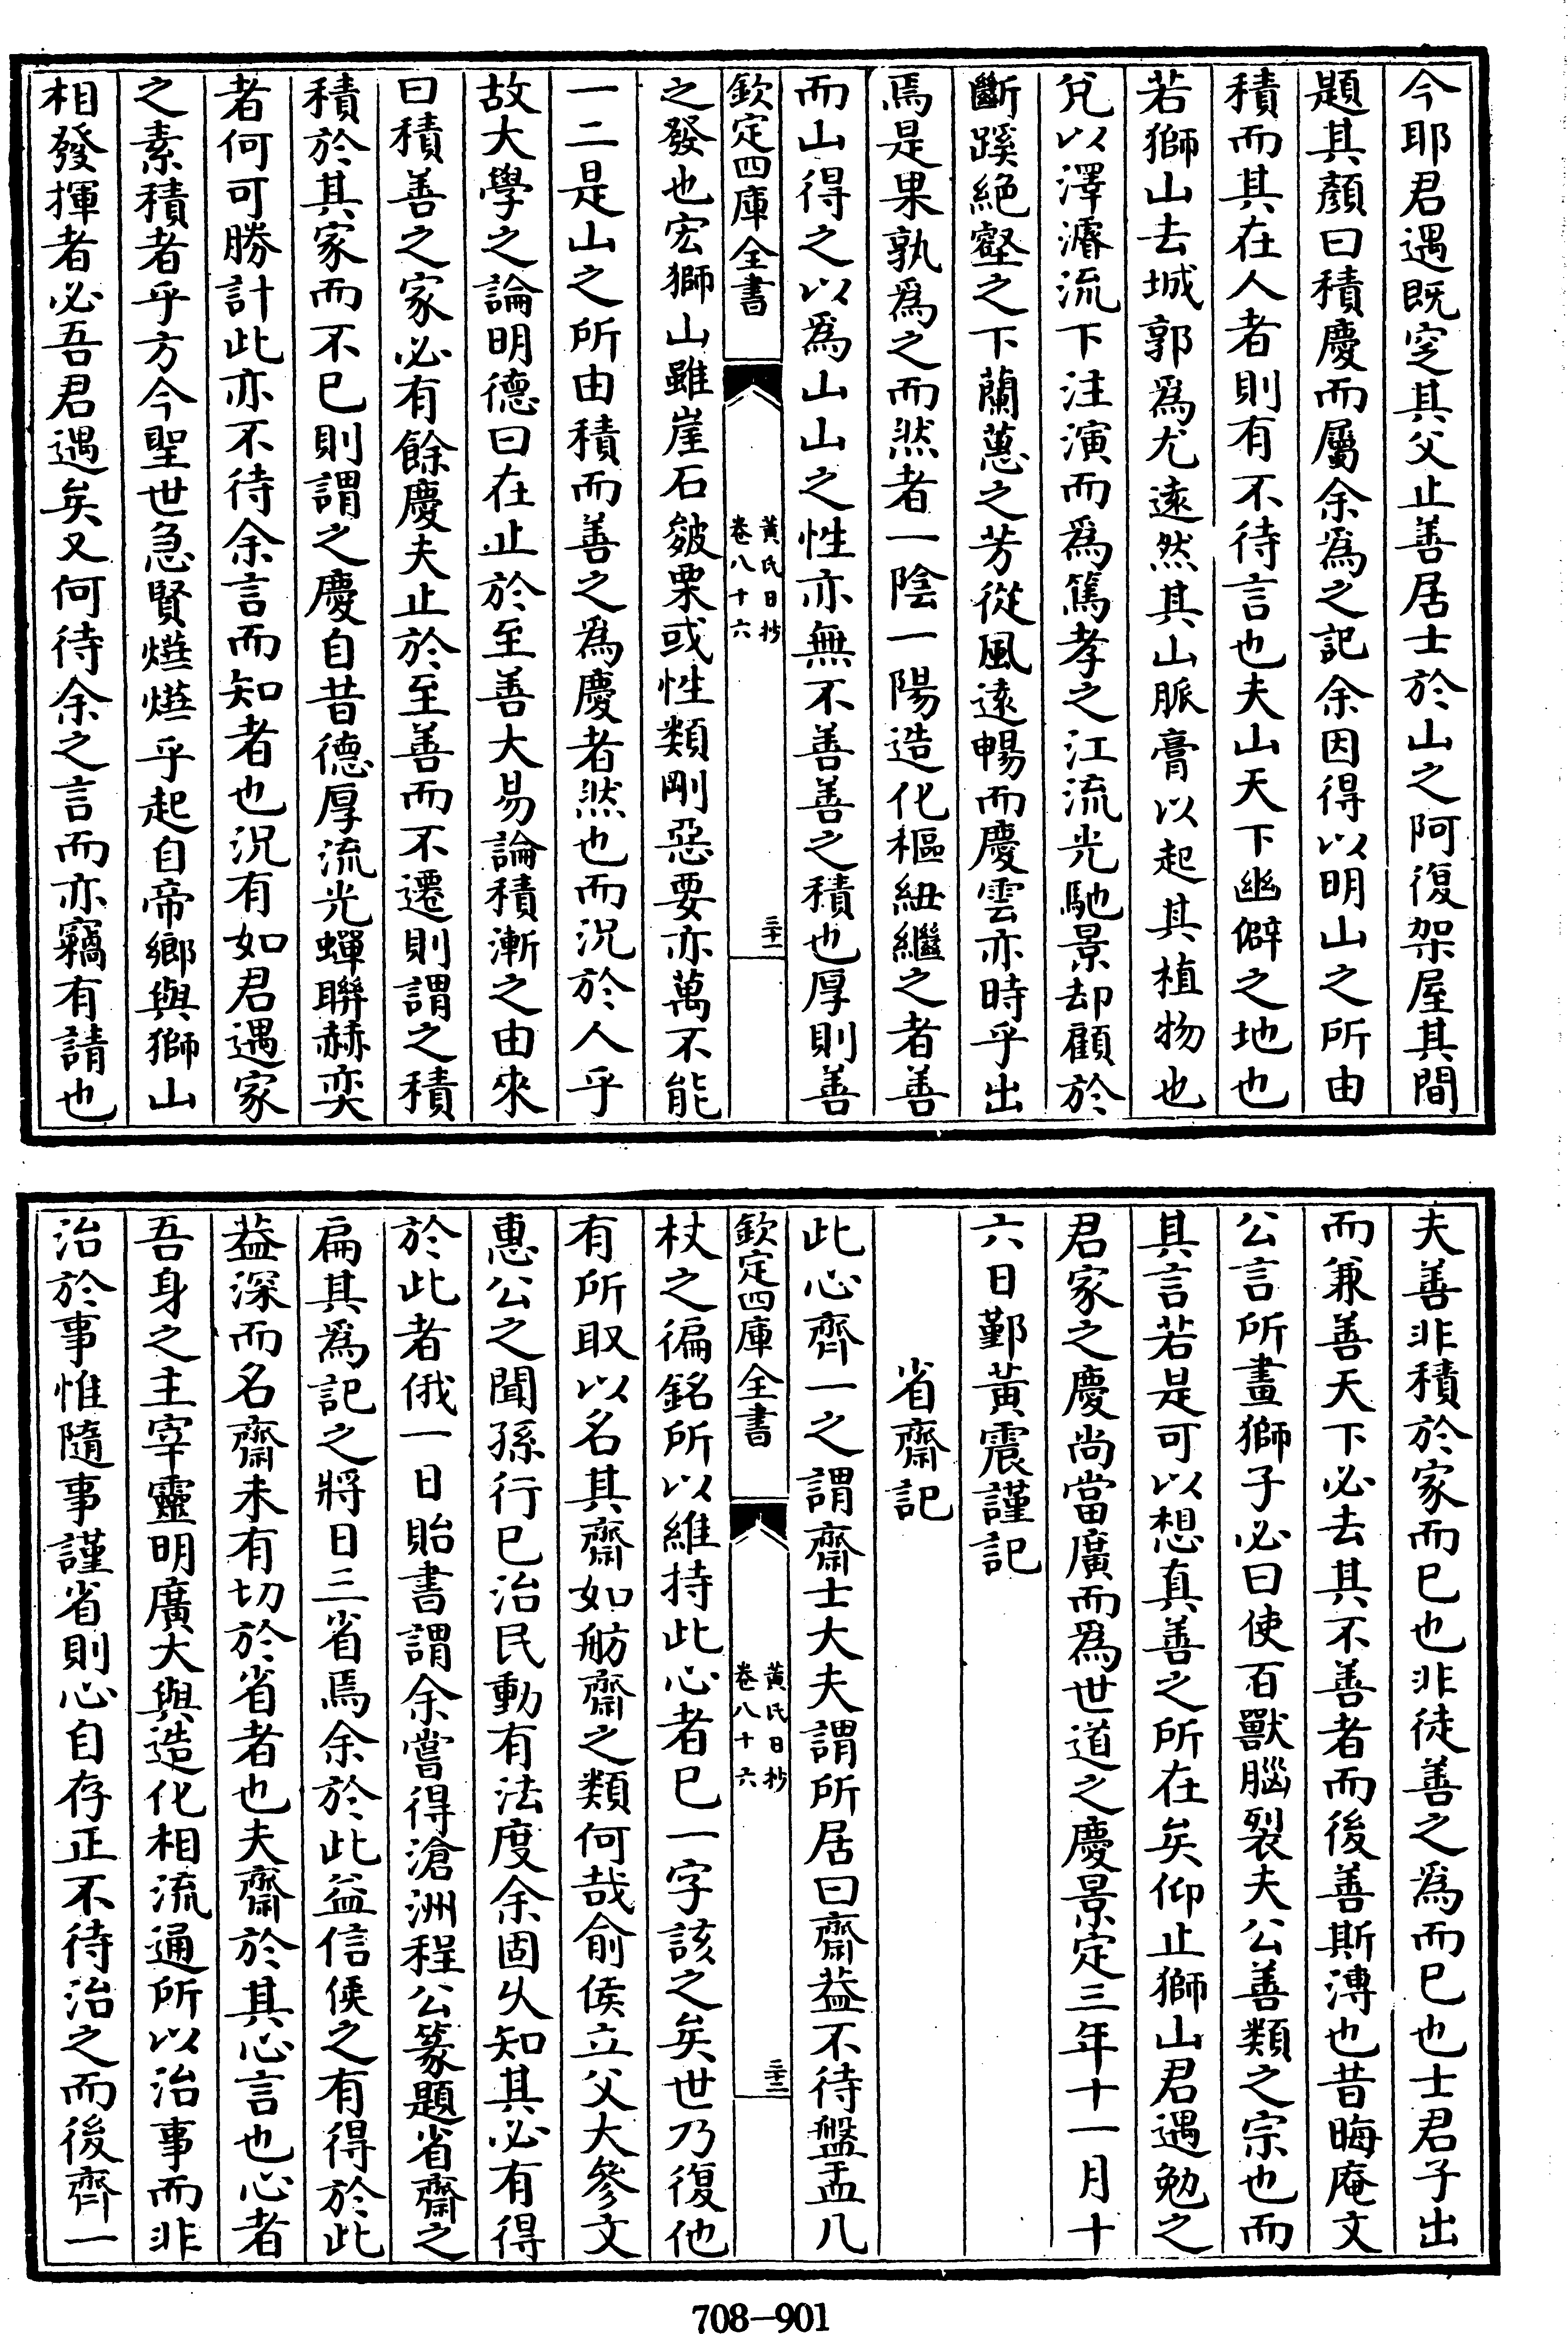 今耶君遇既窆其父止善居士於山之阿復架屋其間
題其顏曰積慶而屬余為之記余因得以明山之所由
積而其在人者則有不待言也夫山天下幽僻之地也
若獅山去城郭為尤遠然其山脈膏以起其植物也
兌以澤濬流下注演而為篤孝之江流光馳景却顧於
斷蹊絶壑之下蘭蕙之芳從風遠暢而慶雲亦時乎出
焉是果孰為之而然者一陰一陽造化樞紐繼之者善
而山得之以為山山之性亦無不善善之積也厚則善
欽定四庫全書
黃氏日抄
卷八十六
三十二
之發也宏獅山雖崖石皴栗或性類剛惡要亦萬不能
一二是山之所由積而善之為慶者然也而況於人乎
故大學之論明德曰在止於至善大易論積漸之由來
曰積善之家必有餘慶夫止於至善而不遷則謂之積
積於其家而不已則謂之慶自昔德厚流光蟬聨赫奕
者何可勝計此亦不待余言而知者也況有如君遇家
之素積者乎方今聖世急賢爗爗乎起自帝鄉與獅山
相發揮者必吾君遇矣又何待余之言而亦竊有請也
夫善非積於家而已也非徒善之為而已也士君子出
而兼善天下必去其不善者而後善斯溥也昔晦庵文
公言所畫獅子必曰使百獸腦裂夫公善類之宗也而
其言若是可以想真善之所在矣仰止獅山君遇勉之
君家之慶尚當廣而為世道之慶景定三年十一月十
六日鄞黃震謹記
省齋記
此心齊一之謂齋士大夫謂所居曰齋葢不待盤盂几
欽定四庫全書
黃氏日抄
卷八十六
三十三
杖之徧銘所以維持此心者已一字該之矣世乃復他
有所取以名其齋如舫齋之類何哉俞侯立父大參文
惠公之聞孫行已治民動有法度余固乆知其必有得
於此者俄一日貽書謂余嘗得滄洲程公篆題省齋之
扁其為記之將日三省焉余於此益信侯之有得於此
葢深而名齋未有切於省者也夫齋於其心言也心者
吾身之主宰靈明廣大與造化相流通所以治事而非
治於事惟隨事謹省則心自存正不待治之而後齊一
708-901